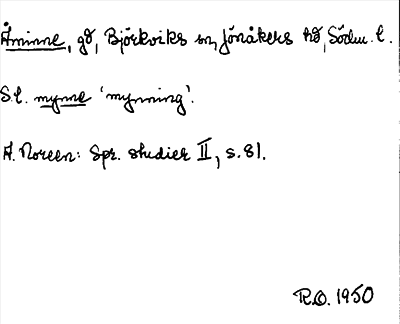 Åminne, gd, Björkviks sn, Jönåkers hd, Södm. l.
S.l. mynne 'mynning'.
A. Noreen: Spr. studier II, s. 81.
R.O. 1950